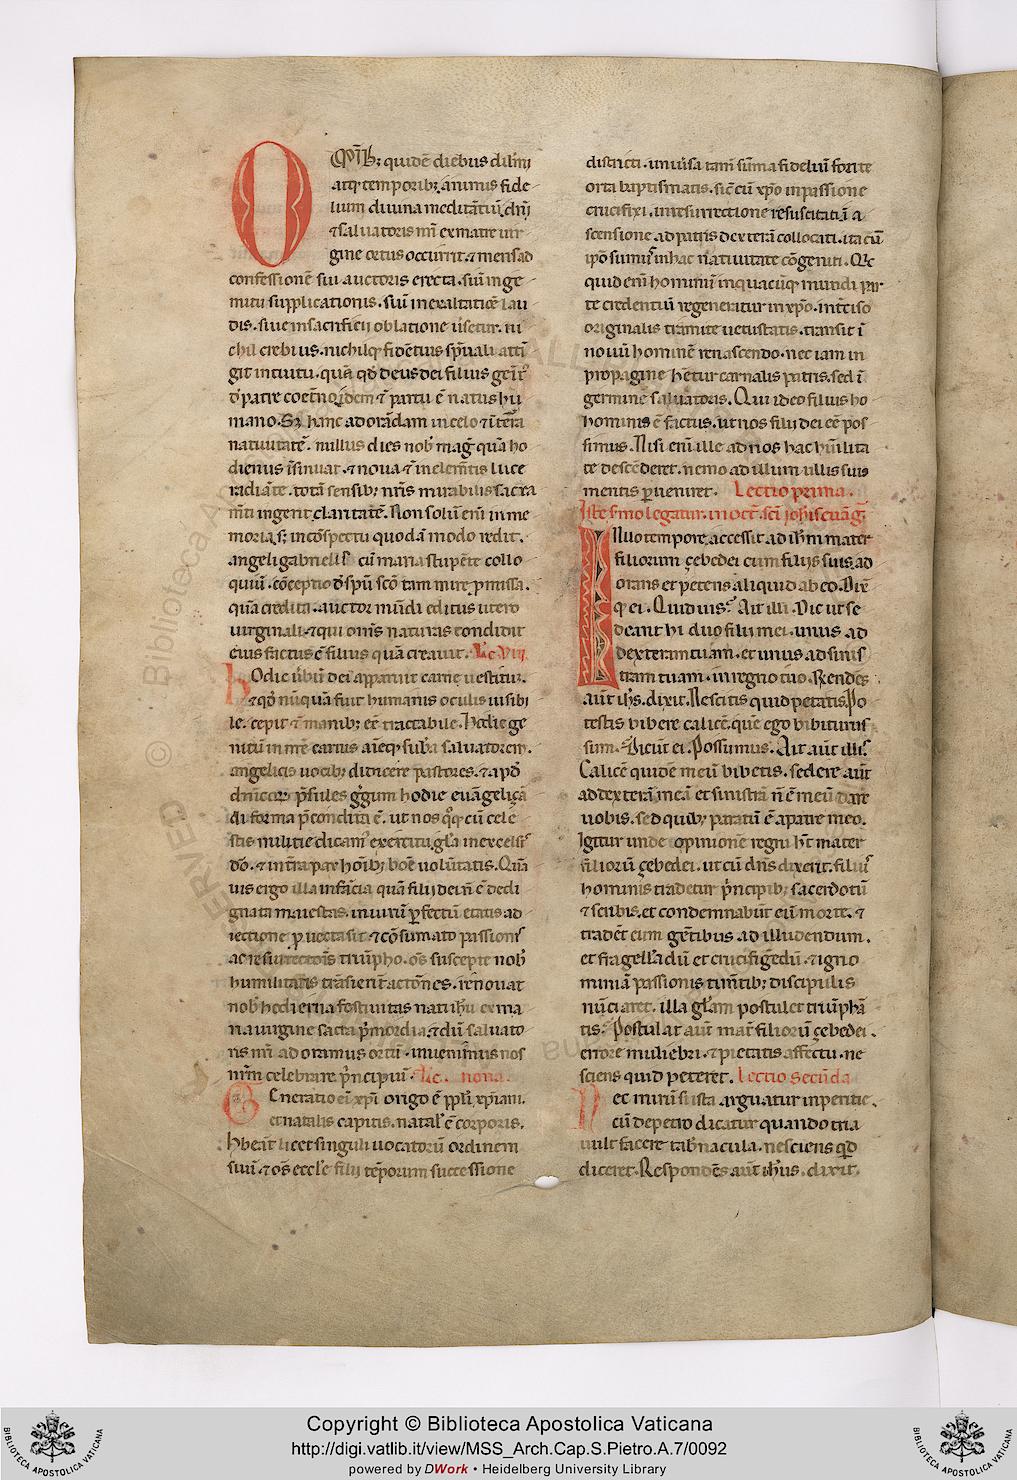 OMNIB; quidē diebus dilm̄i
atq; temporib; animus fide
lium diuina meditātiū, dn̄i
⁊ saluatoris nr̄i ex matre uir
gine ortus occurrit. ⁊ mens ad
confessionē sui auctoris erecta. siue in ge
mitu supplicationis. siue in exaltatiōe lau
dis. siue in sacrificij oblatione uersetur. ni
chil crebrius. nichilq; fidentius sp̄uali atti
git intuitu. quā qd̄ deus dei filius genit'
d̄ patre coet̄no idem ⁊ partu ē natus hu
mano. S; hanc adorādam in celo ⁊ ī t̄ra
natiuitatē. nullus dies nob' mag' quā ho
diernus īsinuat. ⁊ noua ⁊ in elem̄tis luce
radiāte. totā sensib; nr̄is mirabilis sacra
m̄ti ingerit claritatē. Non soliū eni in me
moriā s; in cōspectu quodā modo redit.
angeli gabrielis cū maria stupēte collo
quiū. cōceptio d̄ sp̄u scō tam mire p̄missa.
quā credita. auctor mūdi editus utero
uirginali. ⁊ qui om̄is naturas condidit
eius factus ē filius quā creauit. Lc̄ VIII.
Hodie uerbū dei apparuit carne uestitū.
⁊ qd̄ nūquā fuit humanis oculis uisibi
le. cepit ⁊ manib; eē tractabile. Hodie ge
nitū in nr̄e carnis aīeq; sub̄a saluatorem.
angelicis uocib; didicere pastores. ⁊ apd̄
dn̄icorū p̄sules g̓gum hodie euāgelicā
di forma p̄condita ē. ut nos quoq; cū cele
stis militie dicam' exercitu. gla in excelsis
dō. ⁊ in t̄ra pax hoīb; bone uolūtatis. Quā
uis ergo illa infācia quā filij dei n̄ ē dedi
gnata maiestas. in uirū p̄fectū etatis ad
iectione p̄uecta sit ⁊ cōsumato passionis
ac resurrectiōis triūpho. oīs suscepte nob'
humilitatis trāsierīt actōnes. renouat
nob' hodierna festiuitas nati ih̄u ex ma
ria uirgine sacra p̄mordia. ⁊ dū saluato
ris nr̄i adoramus ortū. inuenimus nos
nr̄m celebrare p̄ncipiū. Lc̄. nona.
Generatio ei xp̄i origo ē pp̄li xp̄iani.
et natalis capitis. natal' ē corporis.
Hbeāt licet singuli uocatorū ordinem
suū. ⁊ oīs eccl'e filij tēporum successione
distincti. uniu'sa tam̄ sūma fideliū fonte
orta baptismatis. sic̄ cū xp̄o in passione
crucifixi. in resurrectione resuscitati. ī a
scensione ad patris dexterā collocati. ita cū
ip̄o sumus in hac natiuitate cōgeniti. Qs
quis eni hominū in quacūq; mundi par
te credentiū regeneratur in xp̄o. int̄ciso
originalis tramite uetustatis. transit ī
nouū hominē renascendo. nec iam in
propagine hetur carnalis patris. sed ī
germine saluatoris. Qui ideo filius ho
hominis ē factus. ut nos filij dei eē pos
simus. Nisi eni ille ad nos hac hūilita
te descēderet. nemo ad illum ullis suis
mentis p̄ueniret. Lectio prima.
Iste s̄mo legatur. in oct̄. sc̄i ioh̄is euāg̓.
IN illo tempore, accessit ad ih̄m mater
filiorum çebedei cum filijs suis. ad
orans et petens aliquid ab eo. Dix̄
q̄ ei. Quid uis? Ait illi. Dic ut se
deant hi duo filii mei. unus ad
dexteram tuam. et unus ad sinis
tram tuam. in regno tuo. Rēndēs
aūt ih̄s. dixit. Nescitis quid petatis. Po
testis bibere calicē. quē ego bibiturus
sum. Dicūt ei. Possumus. Ait aūt illis.
Calicē quidē meū bibetis. sedere aūt
ad dexterā meā et sinistrā n̄ ē meū dare
uobis. sed quib; paratū ē a patre meo.
Igitur unde opinionē regni hēt mater
filiorū çebedei. ut cū dn̄s dixerit. filius
hominis tradetur p̄ncipib; sacerdotū
⁊ scribis. et condemnabūt eū morte. ⁊
tradēt eum gētibus ad illudendum.
et fragellādū et crucifigēdū. ⁊ igno
miniā passionis timētib; discipulis
nūciaret. illa gl'am postulet triūphā
tis. Postulat aūt mat̄ filiorū çebedei.
errore muliebri. ⁊ pietatis affectu. ne
sciens quid peteret. Lectio secūda
Nec mirū si ista arguatur inperitie.
cū de petro dicatur quando tria
uult facere tab̄nacula. nesciens qd̄
diceret. Respondēs aūt ih̄us. dixit.
Copyright © Biblioteca Apostolica Vaticana
http://digi.vatlib.it/view/MSS_Arch.Cap.S.Pietro.A.7/0092
powered by DWork • Heidelberg University Library